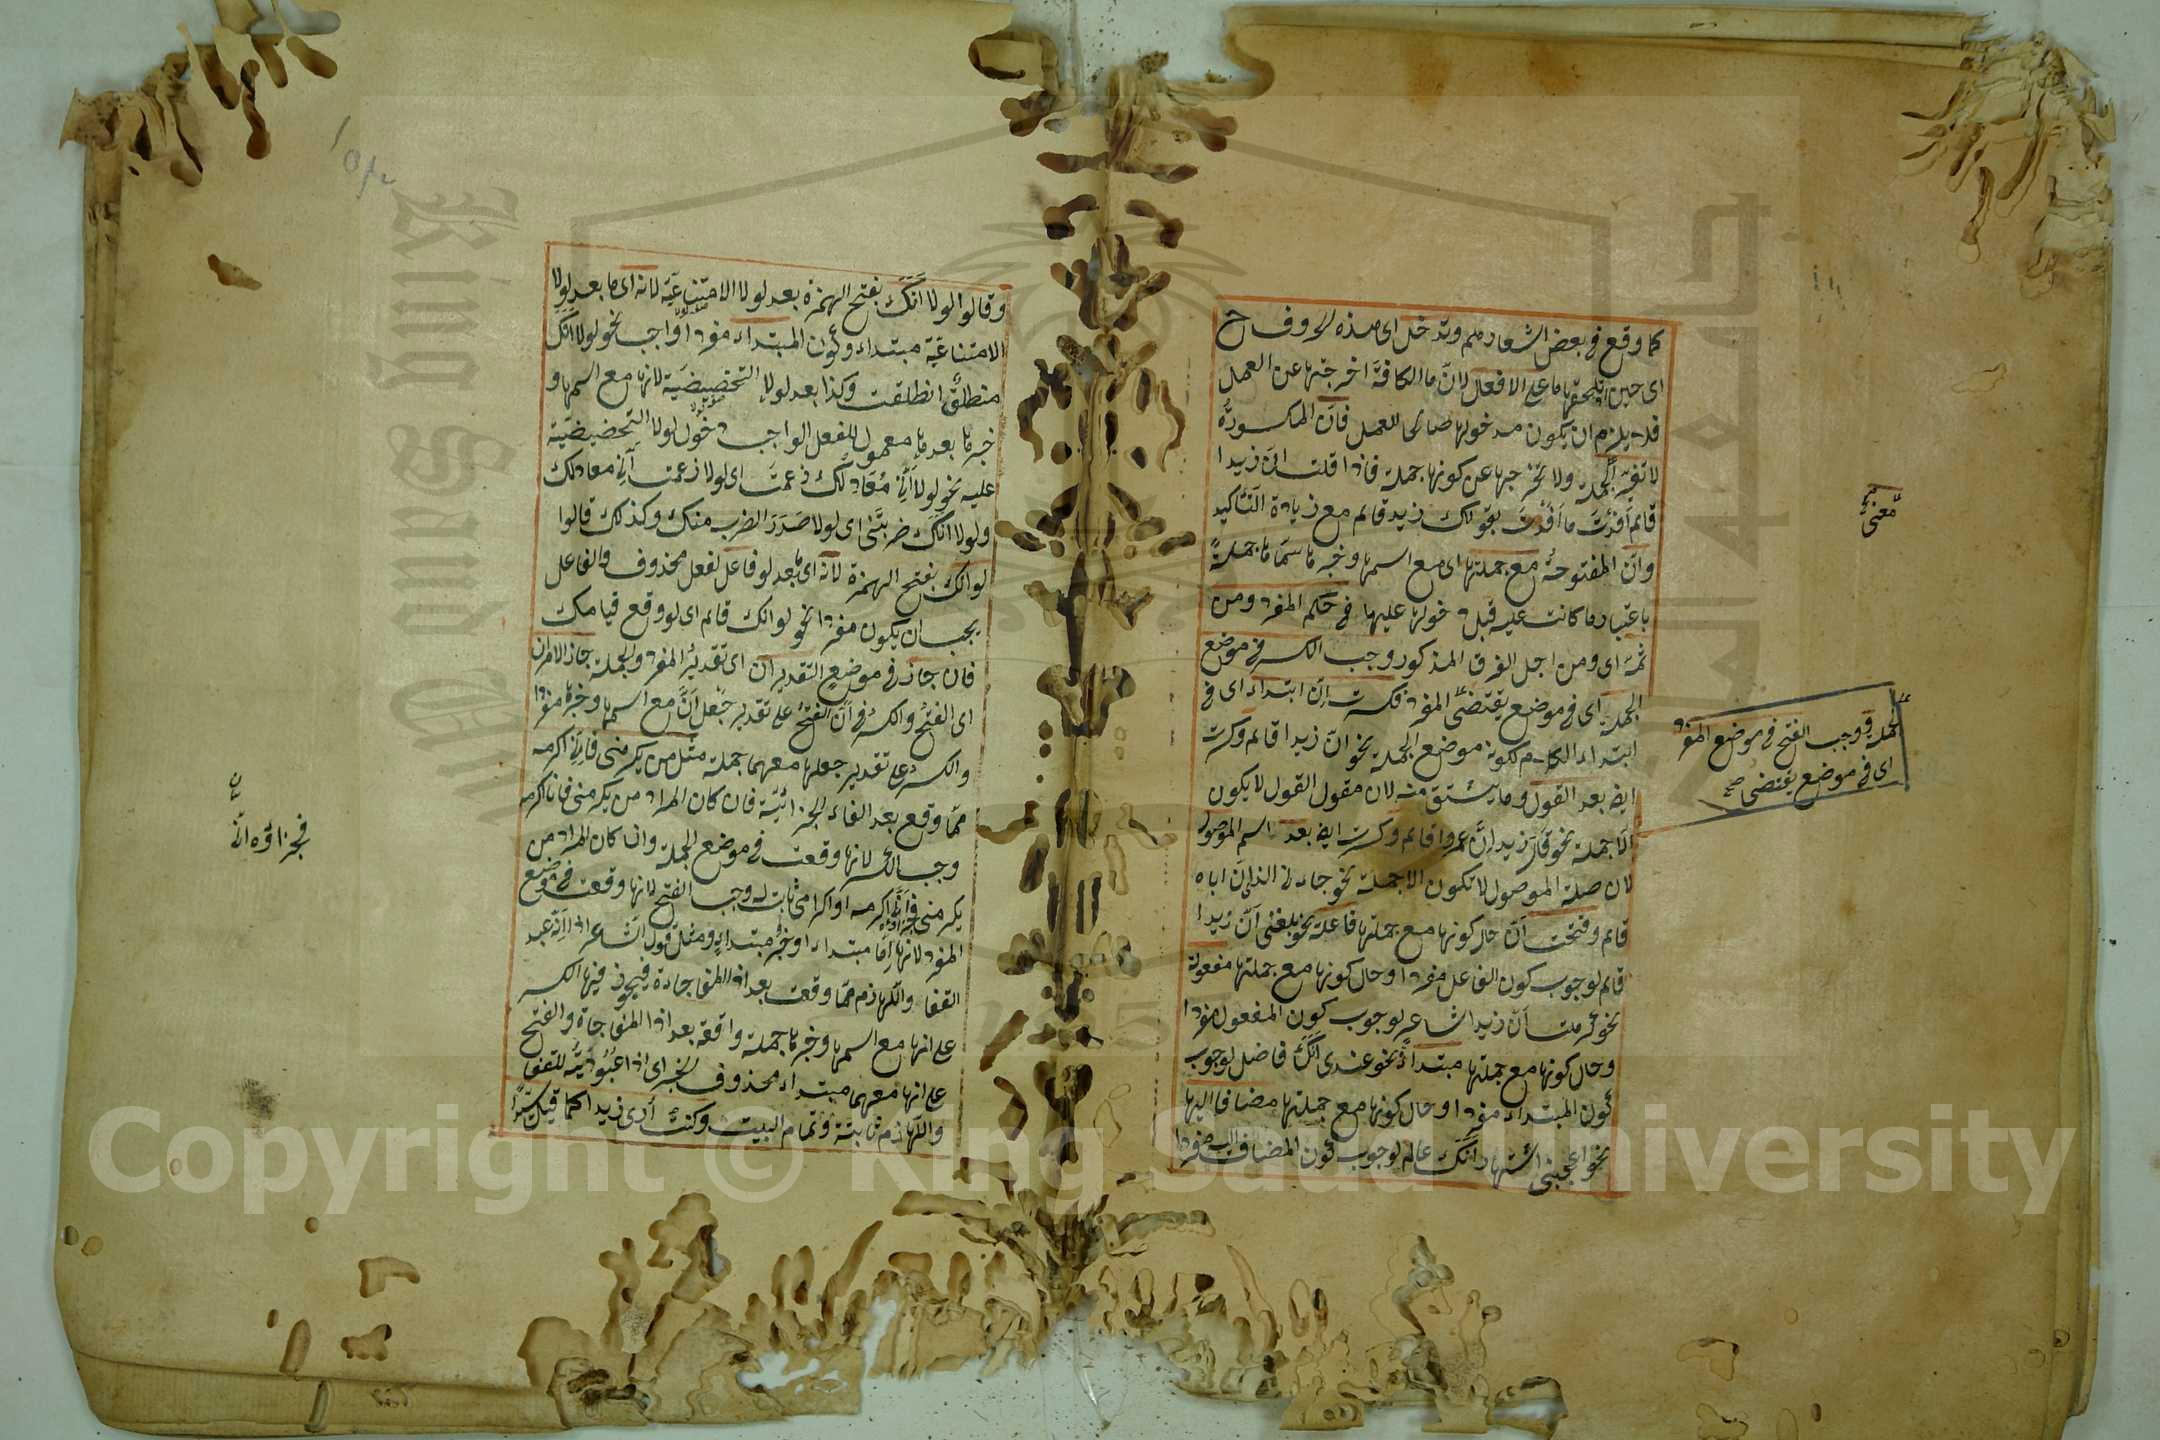 كما وقع في بعض اشعارهم وتدخل اى هذه الحروف ح
اى حين تلحقها ما على الافعال لانّ ما الكافة اخرجتها عن العمل
فلا يلزم ان يكون مدخولها صالحا للعمل فانّ المكسورة
لا تغيّر الجملة ولا تخرجها عن كونها جملة فاذا قلت انّ زيدا
قائم أفدت ما أفدت بقولك زيد قائم مع زيادة التأكيد
وانّ المفتوحة مع جملتها اى مع اسمها وخبرها سماها جملة
باعتبار ما كانت عليه قبل دخولها عليها في حكم المفرد ومن
ثمّ اى ومن اجل الفرق المذكور وجب الكسر في موضع
الجملة اى في موضع يقتضى المفرد فكسرت انّ ابتداء اى في
ابتداء الكلام لكونه موضع الجملة نحو انّ زيدا قائم وكسرت
ايضا بعد القول وما يشتق منه لان مقول القول لا يكون
الا جملة نحو قال زيد انّ عمروا قائم وكسرت ايضا بعد اسم الموصول
لان صلة الموصول لا تكون الا جملة نحو جاءنى الذى انّ اباه
قائم وفتحت انّ حال كونها مع جملتها فاعلة نحو بلغنى انّ زيدا
قائم لوجوب كون الفاعل مفردا وحال كونها مع جملتها مفعولة
نحو كرهت انّ زيدا شاعر لوجوب كون المفعول مفردا
وحال كونها مع جملتها مبتدأة نحو عندى انّك فاضل لوجوب
كون المبتداء مفردا وحال كونها مع جملتها مضافا اليها
نحو اعجبنى اشتهار انّك عالم لوجوب كون المضاف اليه مفردا
معنى
الجملة ووجب الفتح في موضع المفرد
اى في موضع يقتضى صح
وقالوا لولا انّك بفتح الهمزة بعد لولا الامتناعية لانه اى ما بعد لولا
الامتناعية مبتداء وكون المبتداء مفردا واجب نحو لولا انّك
منطلق انطلقت وكذا بعد لولا التحضيضية لانها مع اسمها و
خبرها بعد ها معمول للفعل الواجب دخول لولا التحضيضية
عليه نحو لولا أنّى معاد لك زعمت اى لولا زعمت أنّى معاد لك
ولولا انّك ضربتنى اى لولا صدر الضرب منك وكذلك قالوا
لو انّك بفتح الهمزة لانّه اى ما بعد لو فاعل لفعل محذوف والفاعل
يجب ان يكون مفردا نحو لو انك قائم اى لو وقع قيامك
فان جاز في موضع التقديران اى تقدير المفرد والجملة جاز الامران
اى الفتح والكسر في انّ الفتح على تقدير جعل انّ مع اسمها وخبرها مفردا
والكسر على تقدير جعلها معهما جملة مثل من يكرمنى فانّى اكرمه
ممّا وقع بعد الفاء الجزائية فان كان المراد من يكرمنى فانا اكرمه
وجب الكسر لانها وقعت في موضع الجملة وان كان المراد من
يكرمنى فجزاؤه أنّى اكرمه او اكرامى ثابت له وجب الفتح لانها وقعت في موضع
المفرد لانها امّا مبتداء او خبر مبتداء ومثل قول الشاعر اذا انّه عبد
القفا واللهازم ممّا وقعت بعد اذا المفاجاءة فيجوز فيها الكسر
على انها مع اسمها وخبرها جملة واقعة بعد اذا المفاجاة والفتح
على انها معهما مبتداء محذوف الخبر اى اذا عبوديته للقفا
واللهازم ثابتة وتمام البيت وكنت أرى زيدا كما قيل سيّدا
فجزاؤه انّى
Copyright © King Saud University